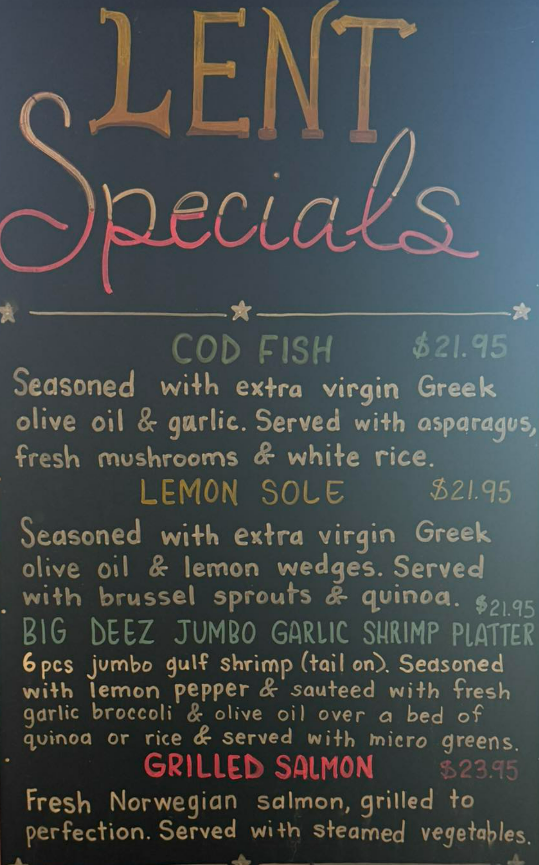 LENT
Specials
COD FISH $21.95
Seasoned with extra virgin Greek
olive oil & garlic. Served with asparagus,
fresh mushrooms & white rice.
LEMON SOLE $21.95
Seasoned with extra virgin Greek
olive oil & lemon wedges. Served
with brussel sprouts & quinoa.
$21.95
BIG DEEZ JUMBO GARLIC SHRIMP PLATTER
6pcs jumbo gulf shrimp (tail on). Seasoned
with lemon pepper & sauteed with fresh
garlic broccoli & olive oil over a bed of
quinoa or rice & served with micro greens.
GRILLED SALMON $23.95
Fresh Norwegian salmon, grilled to
perfection. Served with steamed vegetables.